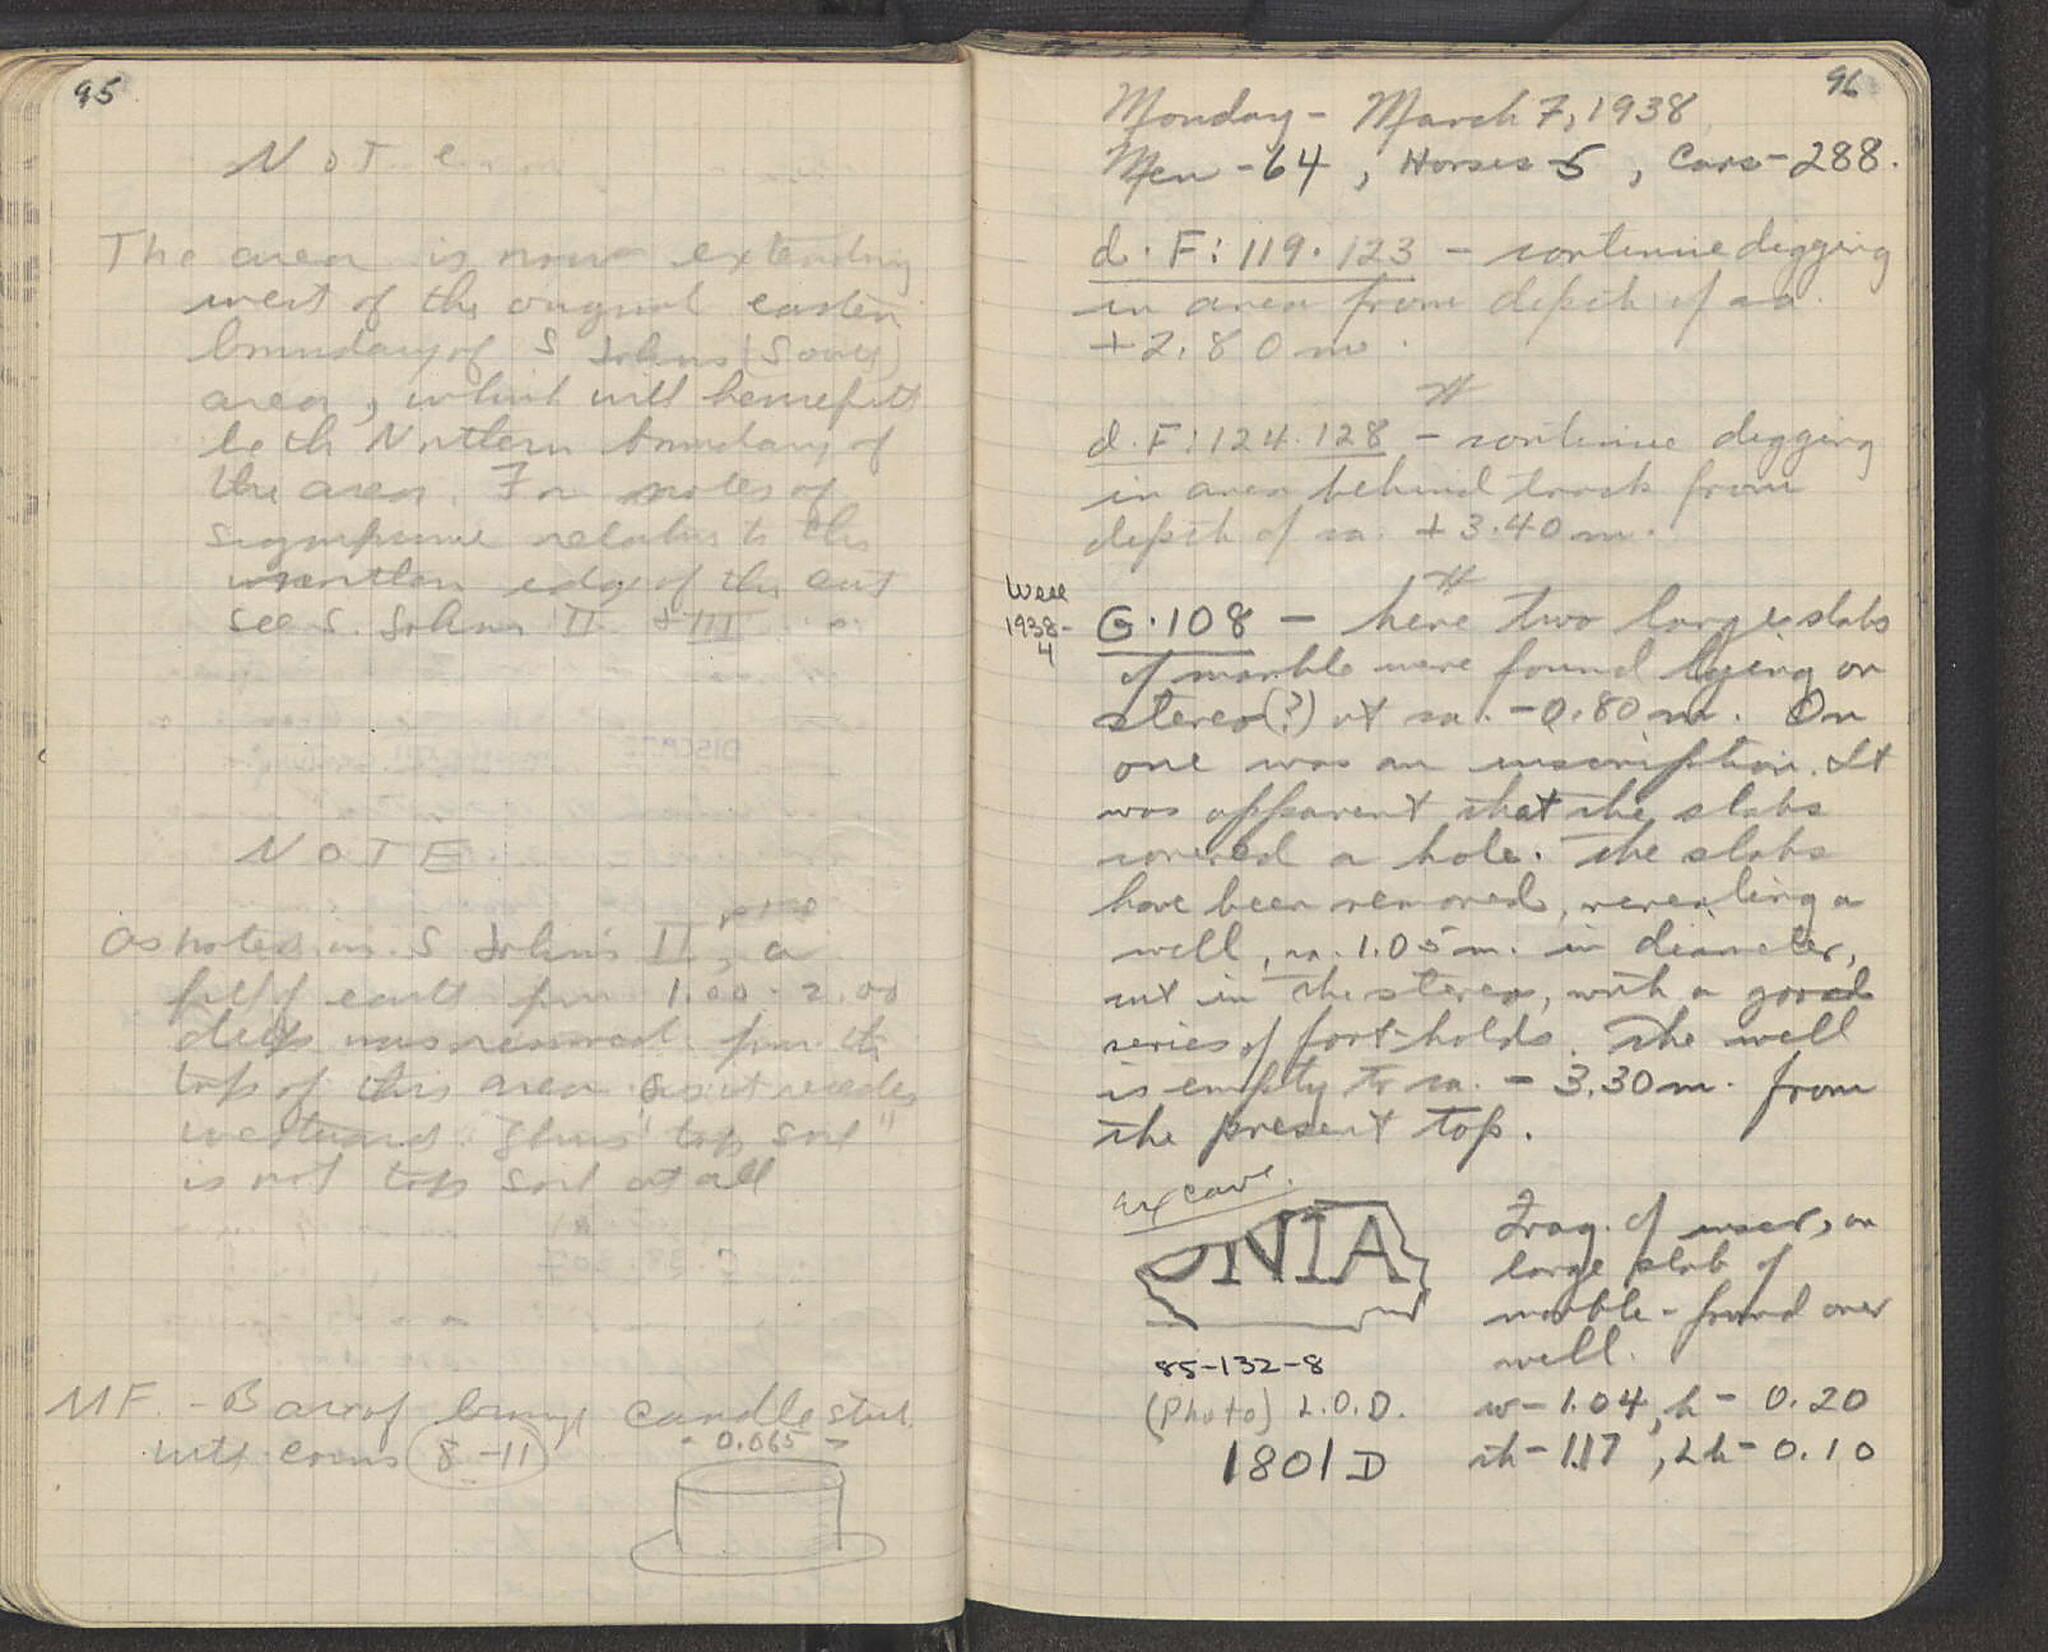 95
Note
The area is now extending
west of the original eastern
boundary of S Johns (South)
area, which will henceforth
be the Northern boundary of
the area. For notes of
significance relative to this
western edge of the cut
see S. Johns II & III
NOTE
As noted in S Johns II, a
fill of earth from 1.00 - 2.00
deep was removed from the
top of this area as it recedes
westward. Thus "top soil"
is not top soil at all
MF. - Base of bronze candle stick
with coins 8-11
- 0.065 -
96
Monday - March 7, 1938
Men - 64, Horses - 5, Cars - 288.
d. F: 119.123 - continue digging
in area from depth of ca.
+2.80 m.
#
d. F: 124.128 - continue digging
in area behind track from
depth of ca. +3.40 m.
#
Well
1938-
4
G.108 - here two large slabs
of marble were found lying on
stereo (?) at ca. -0.80 m. On
one was an inscription. It
was apparent that the slabs
covered a hole. The slabs
have been removed, revealing a
well, ca. 1.05 m. in diameter,
cut in the stereo, with a good
series of foot-holds. The well
is empty to ca. - 3.30 m. from
the present top.
ex cave.
ONIA
Frag. of inscr, on
large slab of
marble - found over
well.
85-132-8
(Photo) L.O.D.
w - 1.04, h - 0.20
1801 D
th - 1.17, Lh - 0.10